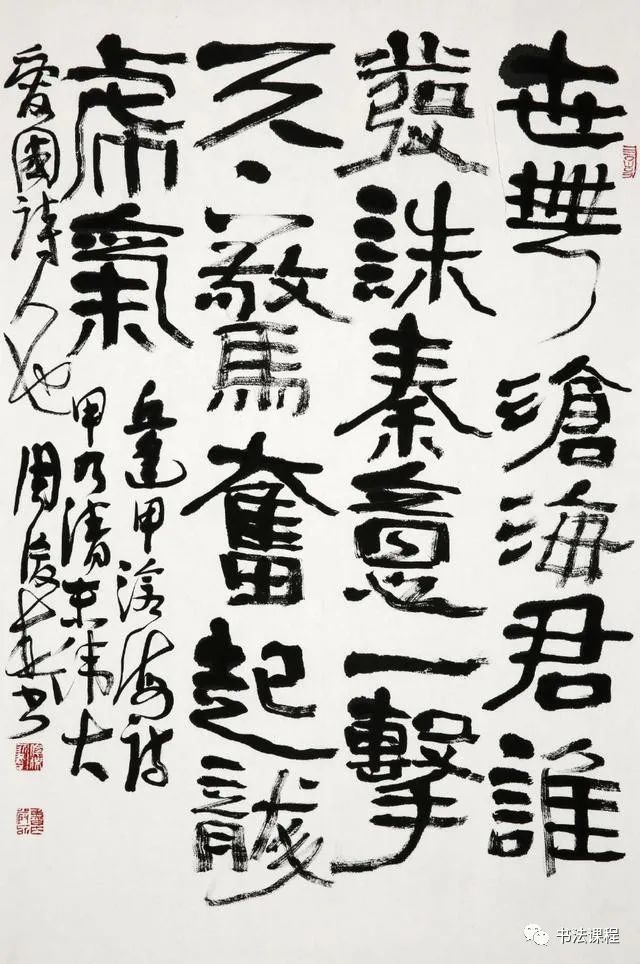 世無滄海君誰
發誅秦意一擊
天下驚奮起龍
虎氣
丘逢甲滄海詩
甲乃清末偉大
愛國詩人也周俊杰書
书法课程